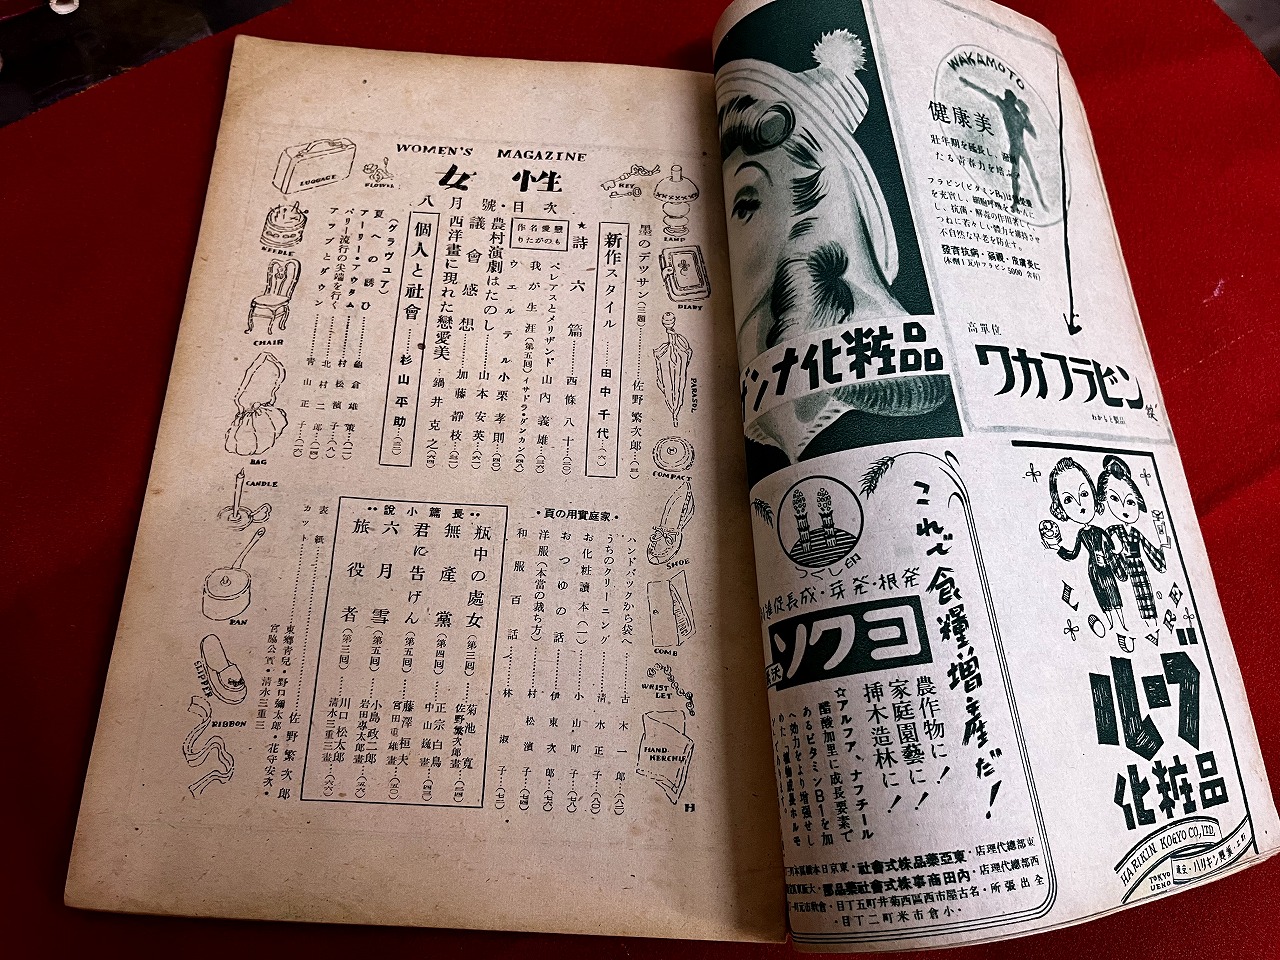 WOMEN'S MAGAZINE
女性
八月號・目次
墨のデッサン(三題)……佐野繁次郎…
新作スタイル……田中千代…
★詩六篇……西條八十…(二〇)
戀愛名作ものがたり
ペレアスとメリザンド 山内義雄…(三六)
我が生涯(第五回)イサドラ・ダンカン(四八)
ウエルテル 小栗孝則…(四〇)
農村演劇はたのし……山本安英…
議會感想……加藤靜枝…
西洋畫に現れた戀愛美…鍋井克之…(六四)
個人と社會……杉山平助…
(グラヴュア)
夏への誘ひ……
アーリー・アウタム……村松濱子…(八)
パリー流行の尖端を行く……北村二郎…
アップとダウン……青山正子…
・家庭實用の頁・
ハンドバックから袋へ……古木一郎…(八二)
うちのクリーニング……清水正子…(八〇)
お化粧讀本(一)……小山町子…
おつゆの話……伊東次郎…
洋服(本當の裁ち方)……村松濱子…(七四)
和服百話……林淑子…(七二)
・・長篇小說・・
瓶中の處女(第三回)…菊池寬
佐野繁次郎畫…(二四)
無產黨(第四回)…正宗白鳥
中山巍畫…
君に告げん(第五回)…藤澤桓夫
宮田重雄畫…(五〇)
六月雪(第五回)…小島政二郎
岩田專太郎畫…
旅役者(第三回)…川口松太郎
清水三重三畫…(六六)
表紙……佐野繁次郎
カット……東鄉青兒・野口彌太郎・花守安次・
宮脇公實・清水三重三
LUGGAGE
FLOWER
KEY
LAMP
NEEDLE
DIARY
CHAIR
PARASOL
BAG
COMPACT
CANDLE
SHOE
PAN
COMB
SLIPPER
WRISTLET
RIBBON
HANDKERCHIEF
H
ンナ化粧品
WAKAMOTO
健康美
壯年期を延長し、
たる青春力を
フラビン(ビタミンB₂)は
を充實し、細胞呼吸をさかんに
し、抗菌・解毒の作用著しく、
つねに若々しい體力を維持させ
不自然な早老を防止す。
發育抗病・弱視・皮膚炎に
高單位
ワカフラビン錠
わかもと製品
つくし印
これで食糧增產だ!
發根・發芽・成長促進
ヨクソ
農作物に!
家庭園藝に!
挿木造林に!
☆アルファ、ナフチール
醋酸加里に成長要素で
あるビタミンB1を加
へ効力をより增强せし
東部總代理店・東亞藥品株式會社・東京日本橋區本
西部總代理店・內田商事株式會社藥品部・大阪
全出張所・名古屋市西區西菊井町五丁目・倉敷市元町一丁
・小倉市米町二丁目・
LULLIRE
ルリ
化粧品
HARIKIN KOGYO CO., LTD.
TOKYO UENO
東京・ハリキン興業・上野